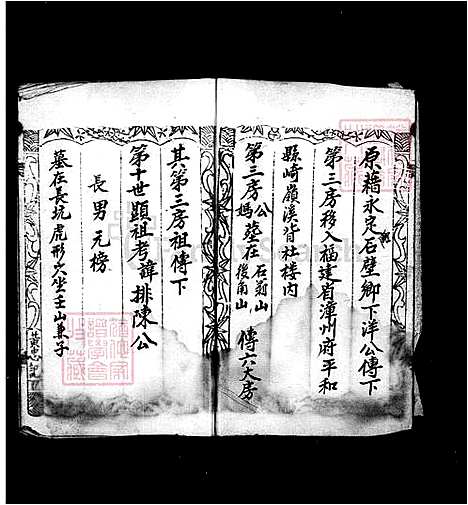 原籍永定石壁鄉下洋公傳下
第三房移入福建省漳州府平和
縣崎嶺溪背社樓内
第三房公媽墓在石前山後角山 傳六大房
其第三房祖傳下
第十世顯祖考諱排陳公
長男元榜
墓在長坑虎形穴坐壬山兼子